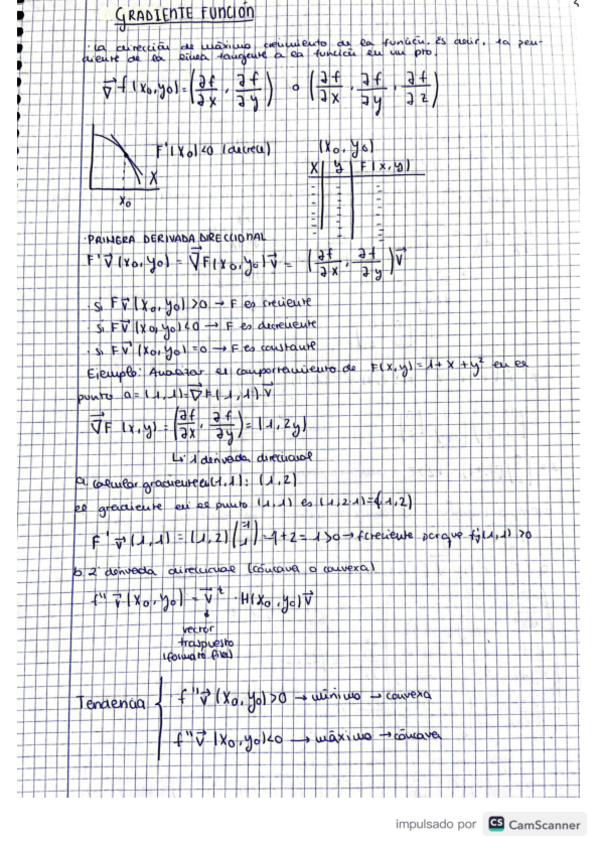 GRADIENTE FUNCIÓN
· La dirección de máximo crecimiento de la función. Es decir, la pen-
diente de la línea tangente a la función en un pto.
∇⃗f(x₀,y₀) = (∂f/∂x , ∂f/∂y) o (∂f/∂x , ∂f/∂y , ∂f/∂z)
F'(x₀)<0 (decrece)
x
x₀
(x₀, y₀)
x y F(x,y)
· PRIMERA DERIVADA DIRECCIONAL
F'v⃗(x₀,y₀) = ∇⃗F(x₀,y₀)v⃗ = (∂f/∂x , ∂f/∂y)v⃗
· Si Fv⃗(x₀,y₀)>0 → F es creciente
· Si Fv⃗(x₀,y₀)<0 → F es decreciente
· Si Fv⃗(x₀,y₀)=0 → F es constante
Ejemplo: Analizar el comportamiento de F(x,y)=1+x+y² en el
punto a=(1,1)=∇⃗F(1,1)v⃗
∇⃗F(x,y) = (∂f/∂x , ∂f/∂y) = (1,2y)
↳ 1 derivada direccional
a. Calcular gradiente (1,1): (1,2)
el gradiente en el punto (1,1) es (1,2·1)=(1,2)
F'v⃗(1,1) = (1,2)(-1/1) = -1+2=1>0 → f creciente porque f'v⃗(1,1)>0
b. 2ª derivada direccional (cóncava o convexa)
f''v⃗(x₀,y₀) = v⃗ᵗ · H(x₀,y₀)v⃗
vector
traspuesto
(formato fila)
Tendencia
f''v⃗(x₀,y₀)>0 → mínimo → convexa
f''v⃗(x₀,y₀)<0 → máximo → cóncava
impulsado por CS CamScanner